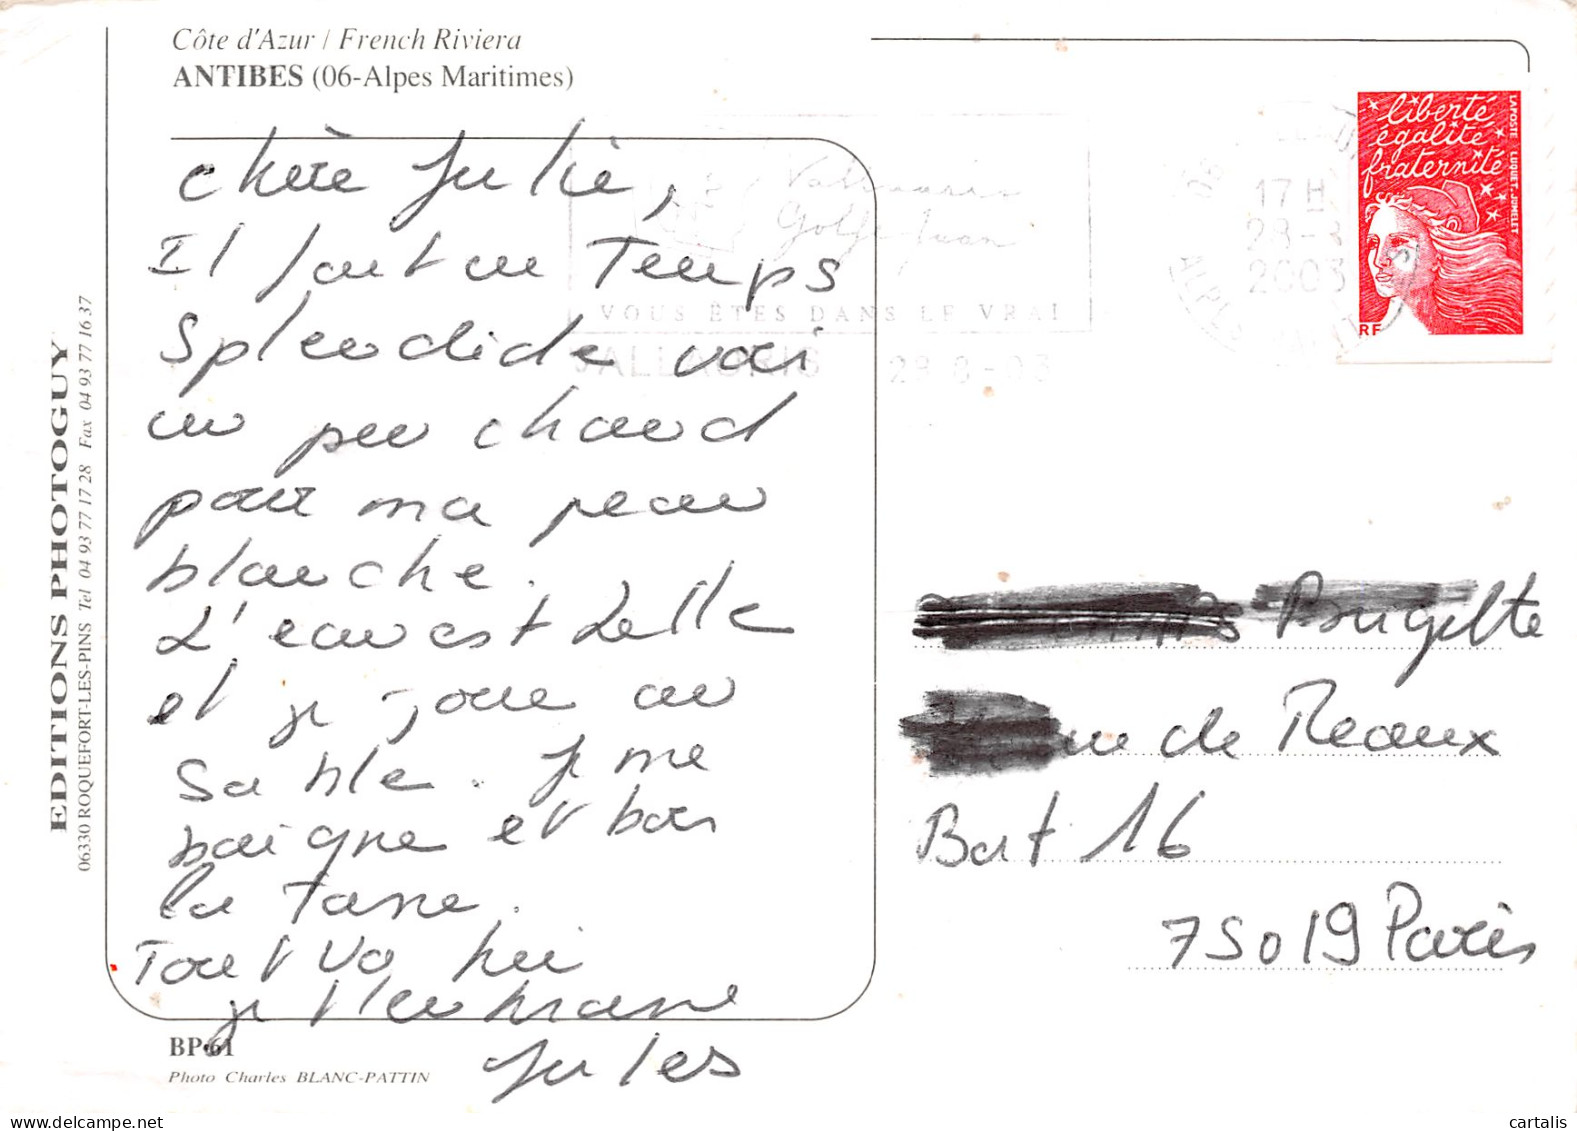 Côte d'Azur / French Riviera
ANTIBES (06-Alpes Maritimes)
Chère Julie,
Il fait un Temps
Splendide voir
un peu chaud
pour ma peau
blanche.
L'eau est belle
et je joue au
sable. Je me
baigne et bois
la Tasse.
Tout va bien
je t'embrasse
Jules
BP 61
Photo Charles BLANC-PATTIN
EDITIONS PHOTOGUY
06330 ROQUEFORT-LES-PINS Tel 04 93 77 17 28 Fax 04 93 77 16 37
Vallauris
Golfe-Juan
VOUS ÊTES DANS LE VRAI
VALLAURIS 28-8-03
17 H
28-8
2003
liberté
égalité
fraternité
RF
LA POSTE LUQUET-JUMELET
Brigitte
de Reaux
Bat 16
75019 Paris
cartalis